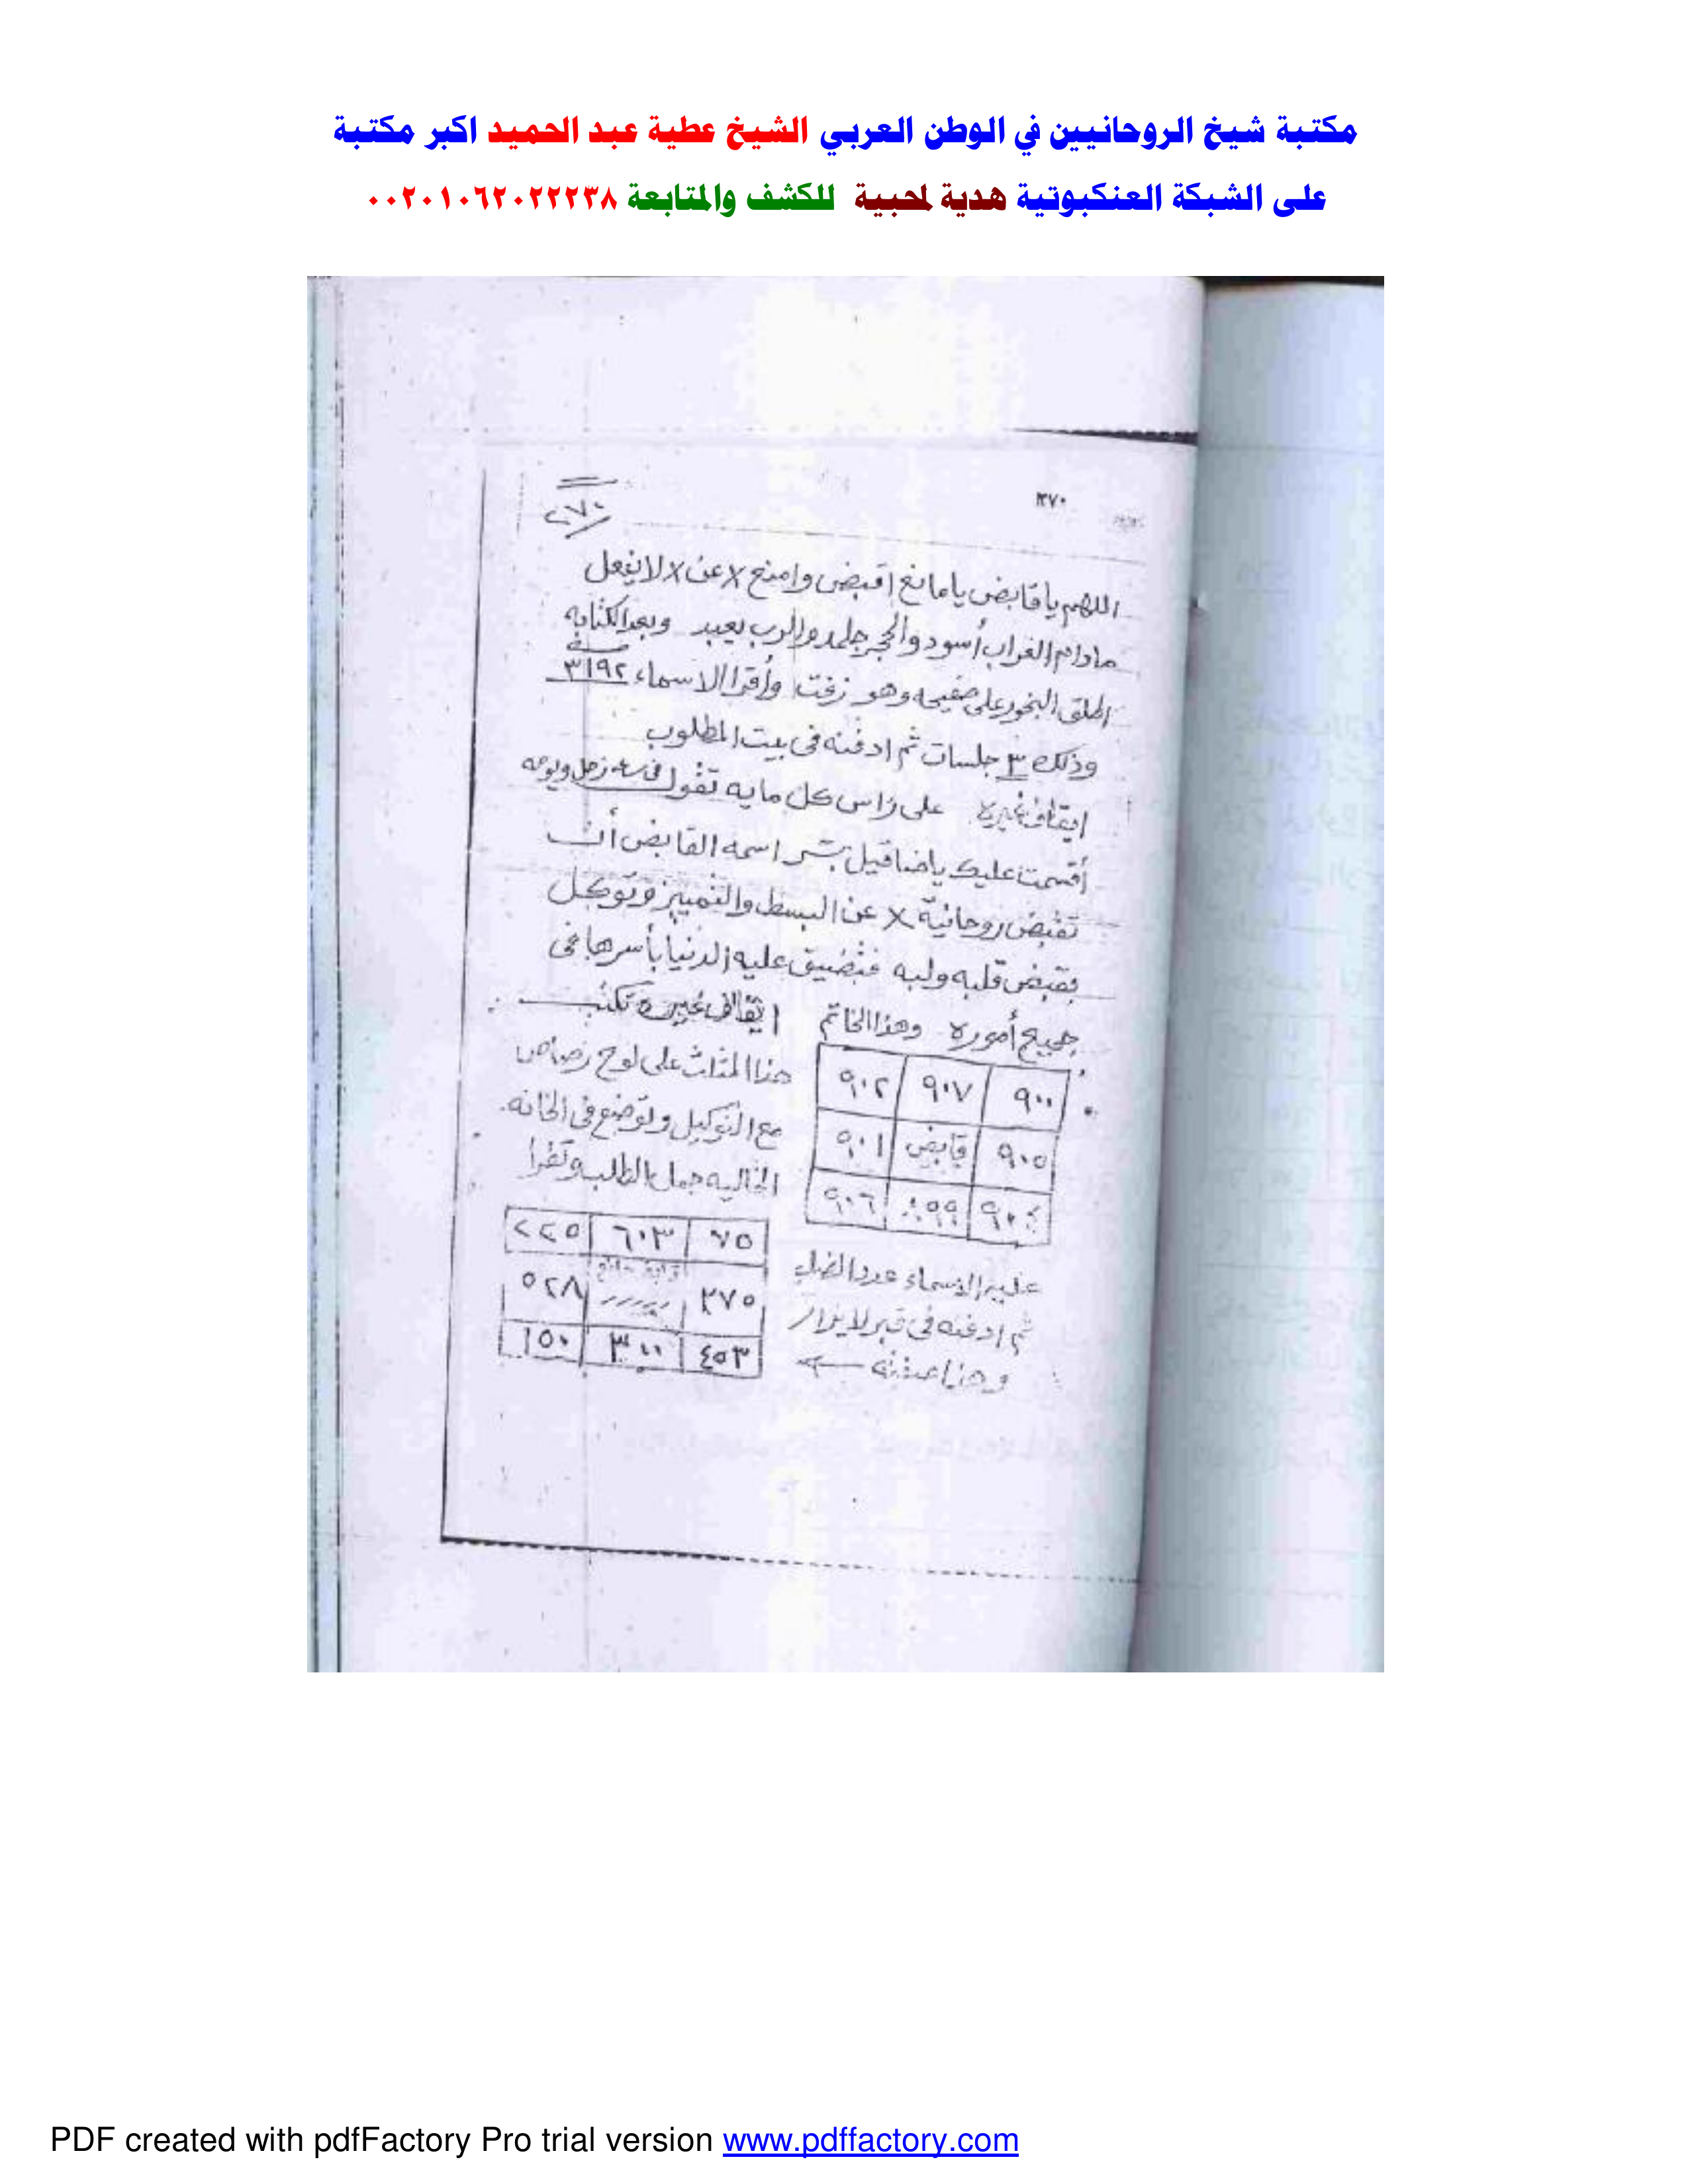 مكتبة شيخ الروحانيين في الوطن العربي الشيخ عطية عبد الحميد اكبر مكتبة
على الشبكة العنكبوتية هدية لمحبية للكشف والمتابعة ٠٠٢٠١٠٦٢٠٢٢٢٣٨
٣٧٠
اللهم يا قابض يا مانع اقبض وامنع x عن x لا يفعل
مادام الغراب أسود والحجر جلمد والرب يعبد وبعد الكتابه
اطلق البخور على صفيحه وهو زفت وأقرا الاسماء ٣١٩٢
وذلك ٣ جلسات ثم ادفنه فى بيت المطلوب
ايقاف غيره على راس كل مايه تقول فى ساعه زحل ويومه
أقسمت عليك يا اسمه القابض أن
تقبض روحانية x عن البسط والتمييز وتوكل
بقبض قلبه ولبه فتضيق عليه الدنيا بأسرها فى
جميع أموره وهذا الخاتم ايقاف غيره تكتب
هذا المثلث على لوح رصاص
مع التوكيل وتوضع فى الخانه
الخاليه جمل الطلب وتقرا
٩٠٠ ٩٠٧ ٩٠٢
٩٠٥ قابض ٩٠١
٩٠٤ ٨٩٩ ٩٠٦
عليه الاسماء عدد الضلع
ثم ادفنه فى قبر لا يزار
وهذا
٧٥ ٦٠٣ ٢٢٥
٣٧٥ ٥٢٨
٤٥٣ ٣٠٠ ١٥٠
PDF created with pdfFactory Pro trial version www.pdffactory.com